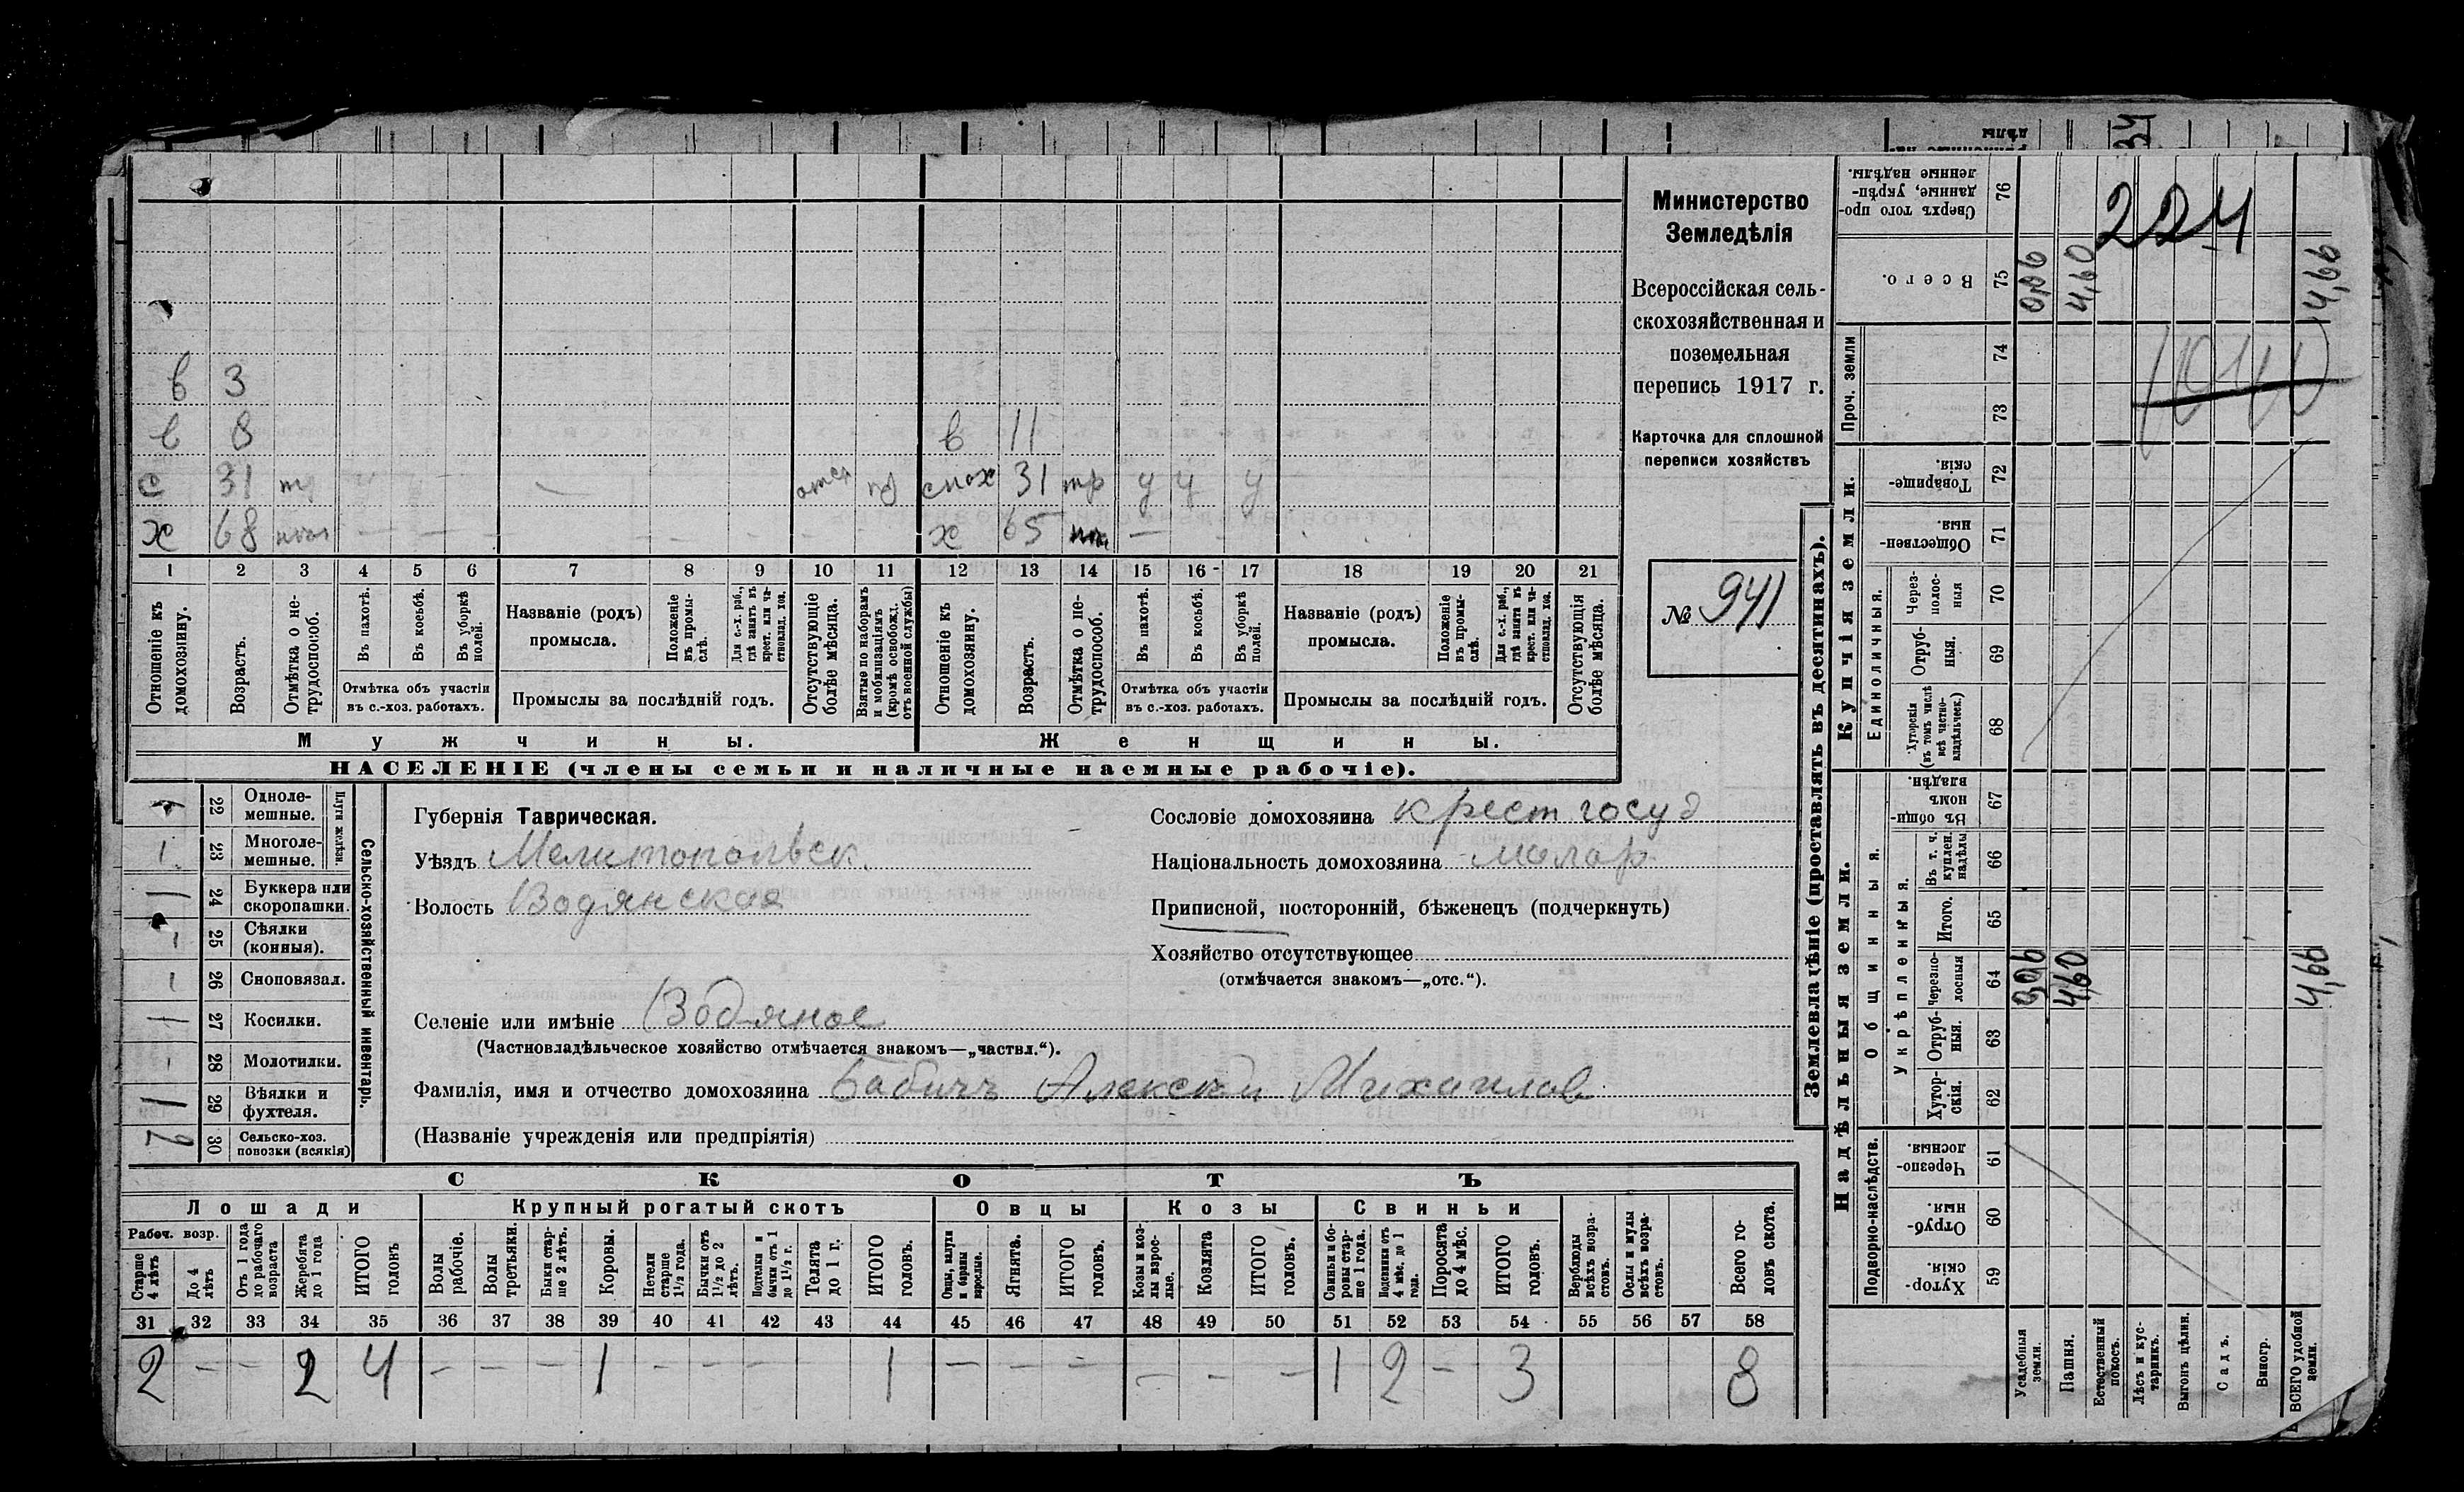 в 3
в 8 в 11
с 31 отся снох 31 тр у у у
х 68 — — — — — — х 65 —
1 2 3 4 5 6 7 8 9 10 11 12 13 14 15 16 17 18 19 20 21
Отношеніе къ домохозяину.
Возрастъ.
Отмѣтка о нетрудоспособ.
Въ пахотѣ.
Въ косьбѣ.
Въ уборкѣ полей.
Отмѣтка объ участіи
въ с.-хоз. работахъ.
Названіе (родъ)
промысла.
Положеніе въ промыслѣ.
Для с.-х. раб., гдѣ занятъ въ крест. или частновлад. хоз.
Промыслы за послѣдній годъ.
Отсутствующіе болѣе мѣсяца.
Взятые по наборамъ и мобилизаціямъ (кромѣ освобожд. отъ военной службы)
Отношеніе къ домохозяину.
Возрастъ.
Отмѣтка о нетрудоспособ.
Въ пахотѣ.
Въ косьбѣ.
Въ уборкѣ полей.
Отмѣтка объ участіи
въ с.-хоз. работахъ.
Названіе (родъ)
промысла.
Положеніе въ промыслѣ.
Для с.-х. раб., гдѣ занята въ крест. или частновлад. хоз.
Промыслы за послѣдній годъ.
Отсутствующія болѣе мѣсяца.
Мужчины. Женщины.
НАСЕЛЕНІЕ (члены семьи и наличные наемные рабочіе).
Министерство
Земледѣлія
Всероссійская сель-
скохозяйственная и
поземельная
перепись 1917 г.
Карточка для сплошной
переписи хозяйствъ
№ 941
Сельско-хозяйственный инвентарь.
Плуги желѣзн.
22 Одноле-
мешные.
1 23 Многоле-
мешные.
1 24 Буккера или
скоропашки.
— 25 Сѣялки
(конныя).
26 Сноповязал.
1 27 Косилки.
— 28 Молотилки.
1 29 Вѣялки и
фухтеля.
30 Сельско-хоз.
повозки (всякія)
Губернія Таврическая.
Уѣздъ Мелитопольск.
Волость Водянская
Селеніе или имѣніе Водяное
(Частновладѣльческое хозяйство отмѣчается знакомъ—„частвл.“).
Фамилія, имя и отчество домохозяина Бабичъ Алексѣй Михаилов
(Названіе учрежденія или предпріятія)
Сословіе домохозяина крест. госуд
Національность домохозяина малор
Приписной, посторонній, бѣженецъ (подчеркнуть)
Хозяйство отсутствующее
(отмѣчается знакомъ—„отс.“).
СКОТЪ
Лошади Крупный рогатый скотъ Овцы Козы Свиньи
Рабоч. возр.
Старше 4 лѣтъ
До 4 лѣтъ
Отъ 1 года до рабочаго возраста
Жеребята до 1 года
ИТОГО головъ
Волы рабочіе.
Волы третьяки.
Быки старше 2 лѣтъ.
Коровы.
Нетели старше 1½ года.
Бычки отъ 1½ до 2 лѣтъ.
Подтелки и бычки отъ 1 до 1½ г.
Телята до 1 г.
ИТОГО головъ.
Овцы, валухи и бараны взрослые.
Ягнята.
ИТОГО головъ.
Козы и козлы взрослые.
Козлята
ИТОГО головъ.
Свиньи и боровы старше 1 года.
Подсвинки отъ 4 мѣс. до 1 года.
Поросята до 4 мѣс.
ИТОГО головъ.
Верблюды всѣхъ возрастовъ.
Ослы и мулы всѣхъ возрастовъ.
Всего головъ скота.
31 32 33 34 35 36 37 38 39 40 41 42 43 44 45 46 47 48 49 50 51 52 53 54 55 56 57 58
2 — — 2 4 — — — 1 — — — 1 — — — — — — 1 2 — 3 8
Землевладѣніе (проставлять въ десятинахъ).
Купчія земли.
Надѣльныя земли.
Проч. земли
Единоличныя.
Общинныя.
Укрѣпленныя.
Подворно-наслѣдств.
76 Сверхъ того проданные, укрѣпленные надѣлы.
75 Всего. 0,06 4,60 4,66
224
74
73
1040
72 Товарищескія.
71 Общественныя.
70 Черезполосныя
69 Отрубныя.
68 Хуторскія (въ томъ числѣ всѣ частновладѣльческ.)
67 Въ общинномъ владѣн.
66 Въ т. ч. куплен. надѣлы
65 Итого.
64 Черезполосныя 4,60 4,66
63 Отрубныя.
62 Хуторскія.
61 Черезполосныя
60 Отрубныя.
59 Хуторскія.
Усадебныя земли.
Пашня.
Естественный покосъ.
Лѣсъ и кустарникъ.
Выгонъ цѣлин.
Садъ.
Виногр.
ВСЕГО удобной земли.